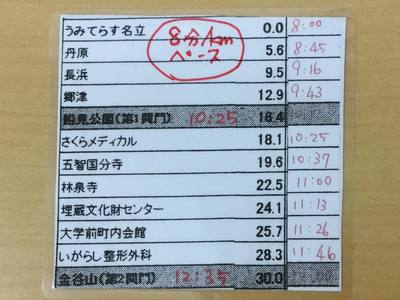 うみてらす名立 0.0 8:00
8分/km
ペース
丹原 5.6 8:45
長浜 9.5 9:16
郷津 12.9 9:43
船見公園(第1関門) 10:25 16.4
さくらメディカル 18.1 10:25
五智国分寺 19.6 10:37
林泉寺 22.5 11:00
埋蔵文化財センター 24.1 11:13
大学前町内会館 25.7 11:26
いがらし整形外科 28.3 11:46
金谷山(第2関門) 12:35 30.0